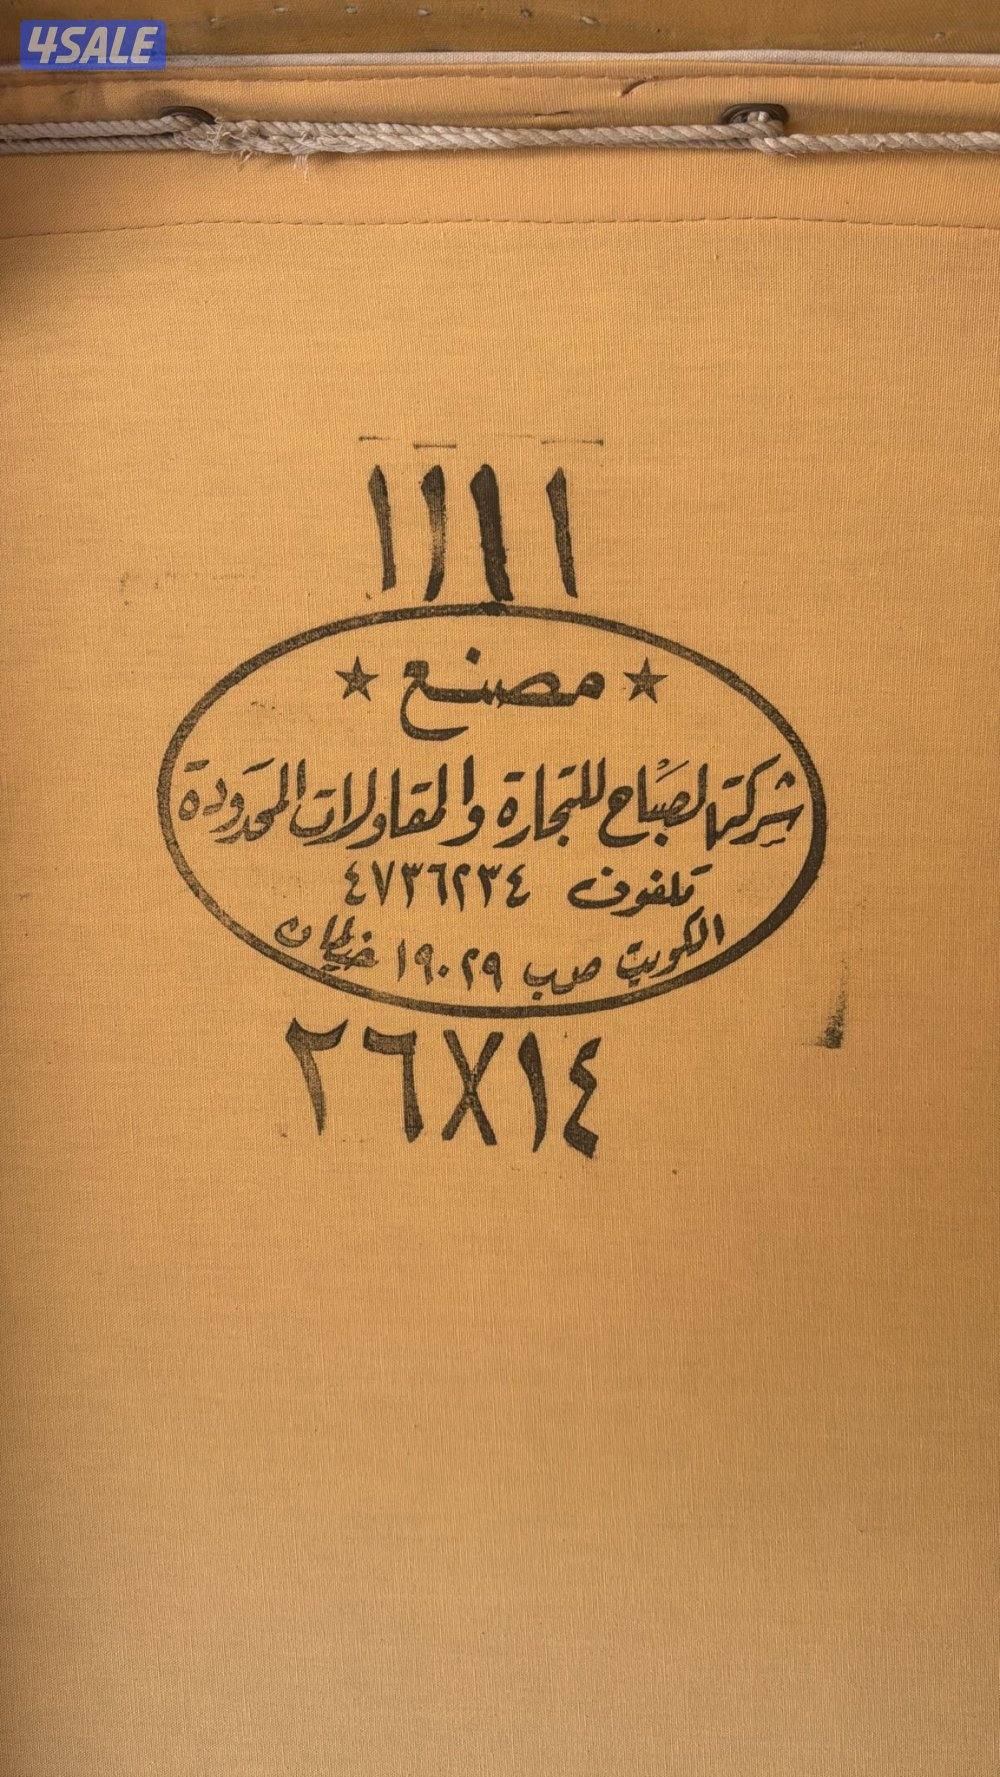 4SALE
١١١١
مصنع
شركة الصباح للتجارة والمقاولات المحدودة
تلفون ٤٧٣٦٢٣٤
الكويت ص.ب ١٩٠٢٩ خيطان
٢٦X١٤